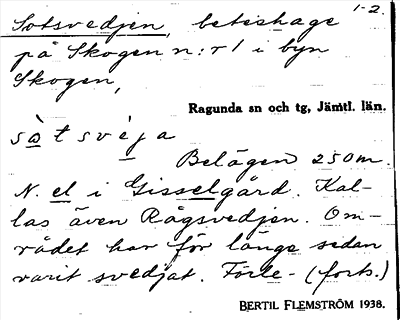 1-2.
Sotsvedjen, beteshage
på Skogen n:r 1 i byn
Skogen,
Ragunda sn och tg, Jämtl. län.
sòtsvèja
Belägen 250 m.
N. el i Gisselgård. Kal-
las även Rågsvedjen. Om-
rådet har för länge sedan
varit svedjat. Förle- (forts.)
BERTIL FLEMSTRÖM 1938.